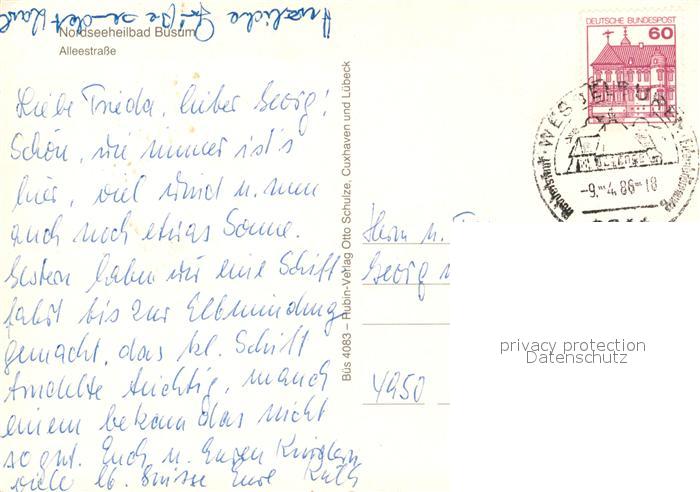 Herzliche Grüße sendet
Nordseeheilbad Büsum
Alleestraße
Liebe Frieda, lieber Georg!
Schön, wie immer ist's
hier, viel Wind u. nun
auch noch etwas Sonne.
Gestern haben wir eine Schiff
fahrt bis zur Elbmündung
gemacht, das kl. Schiff
schaukelte tüchtig, manch
einem bekam das nicht
so gut. Euch u. Euren Kindern
viele lb. Grüsse Eure Ruth
Büs 4083 – Rubin-Verlag Otto Schulze, Cuxhaven und Lübeck
DEUTSCHE BUNDESPOST
60
WESSELBUREN
-9.-4.86-18
Herrn u. Fr
Georg
4950
privacy protection
Datenschutz